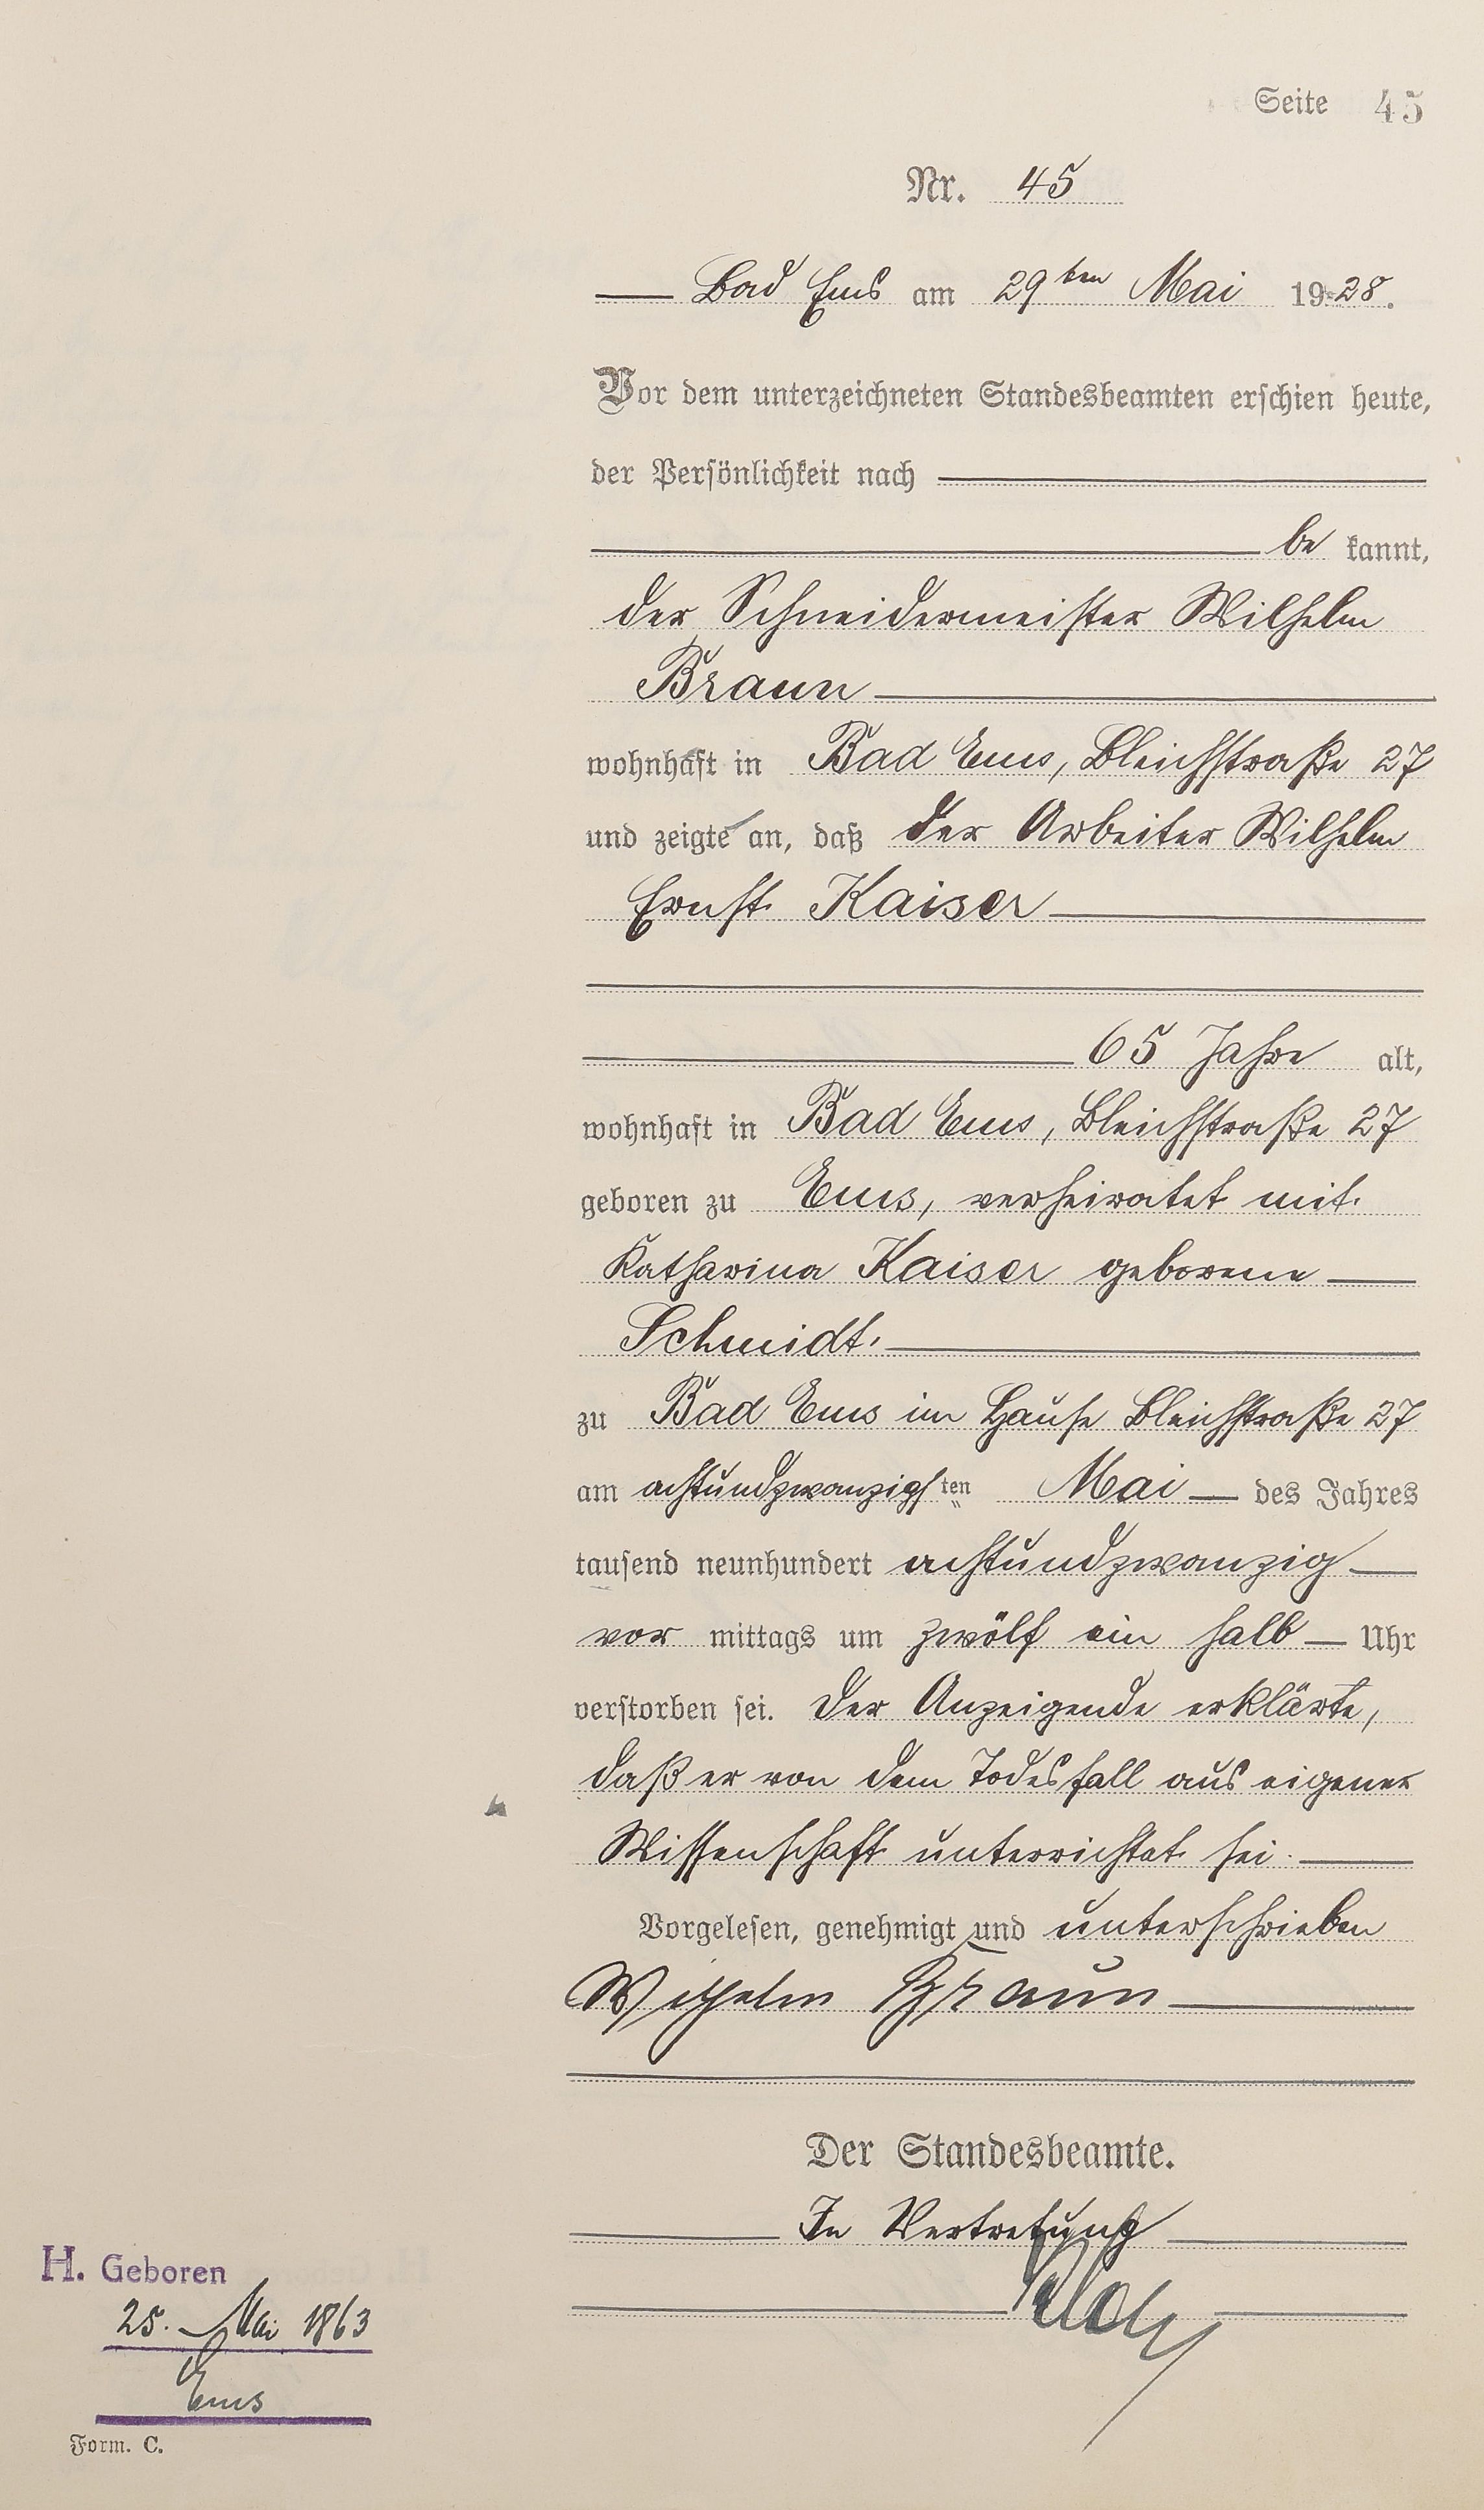 Seite 45
Nr. 45
Bad Ems am 29ten Mai 1928.
Vor dem unterzeichneten Standesbeamten erschien heute,
der Persönlichkeit nach
be kannt,
der Schneidermeister Wilhelm
Braun
wohnhaft in Bad Ems, Bleichstraße 27
und zeigte an, daß der Arbeiter Wilhelm
Ernst Kaiser
65 Jahre alt,
wohnhaft in Bad Ems, Bleichstraße 27
geboren zu Ems, verheiratet mit
Katharina Kaiser geborene
Schmidt.
zu Bad Ems im Hause Bleichstraße 27
am achtundzwanzigsten Mai des Jahres
tausend neunhundert achtundzwanzig
vor mittags um zwölf ein halb Uhr
verstorben sei. Der Anzeigende erklärte,
daß er von dem Todesfall aus eigener
Wissenschaft unterrichtet sei.
Vorgelesen, genehmigt und unterschrieben
Wilhelm Braun
Der Standesbeamte.
In Vertretung
H. Geboren
25. Mai 1863
Ems
Form. C.